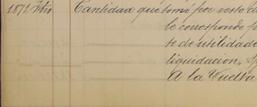 1872 Cantidad que tomó por resto de
le corresponde p
te de utilidade
liquidacion, 
A la Vuelta